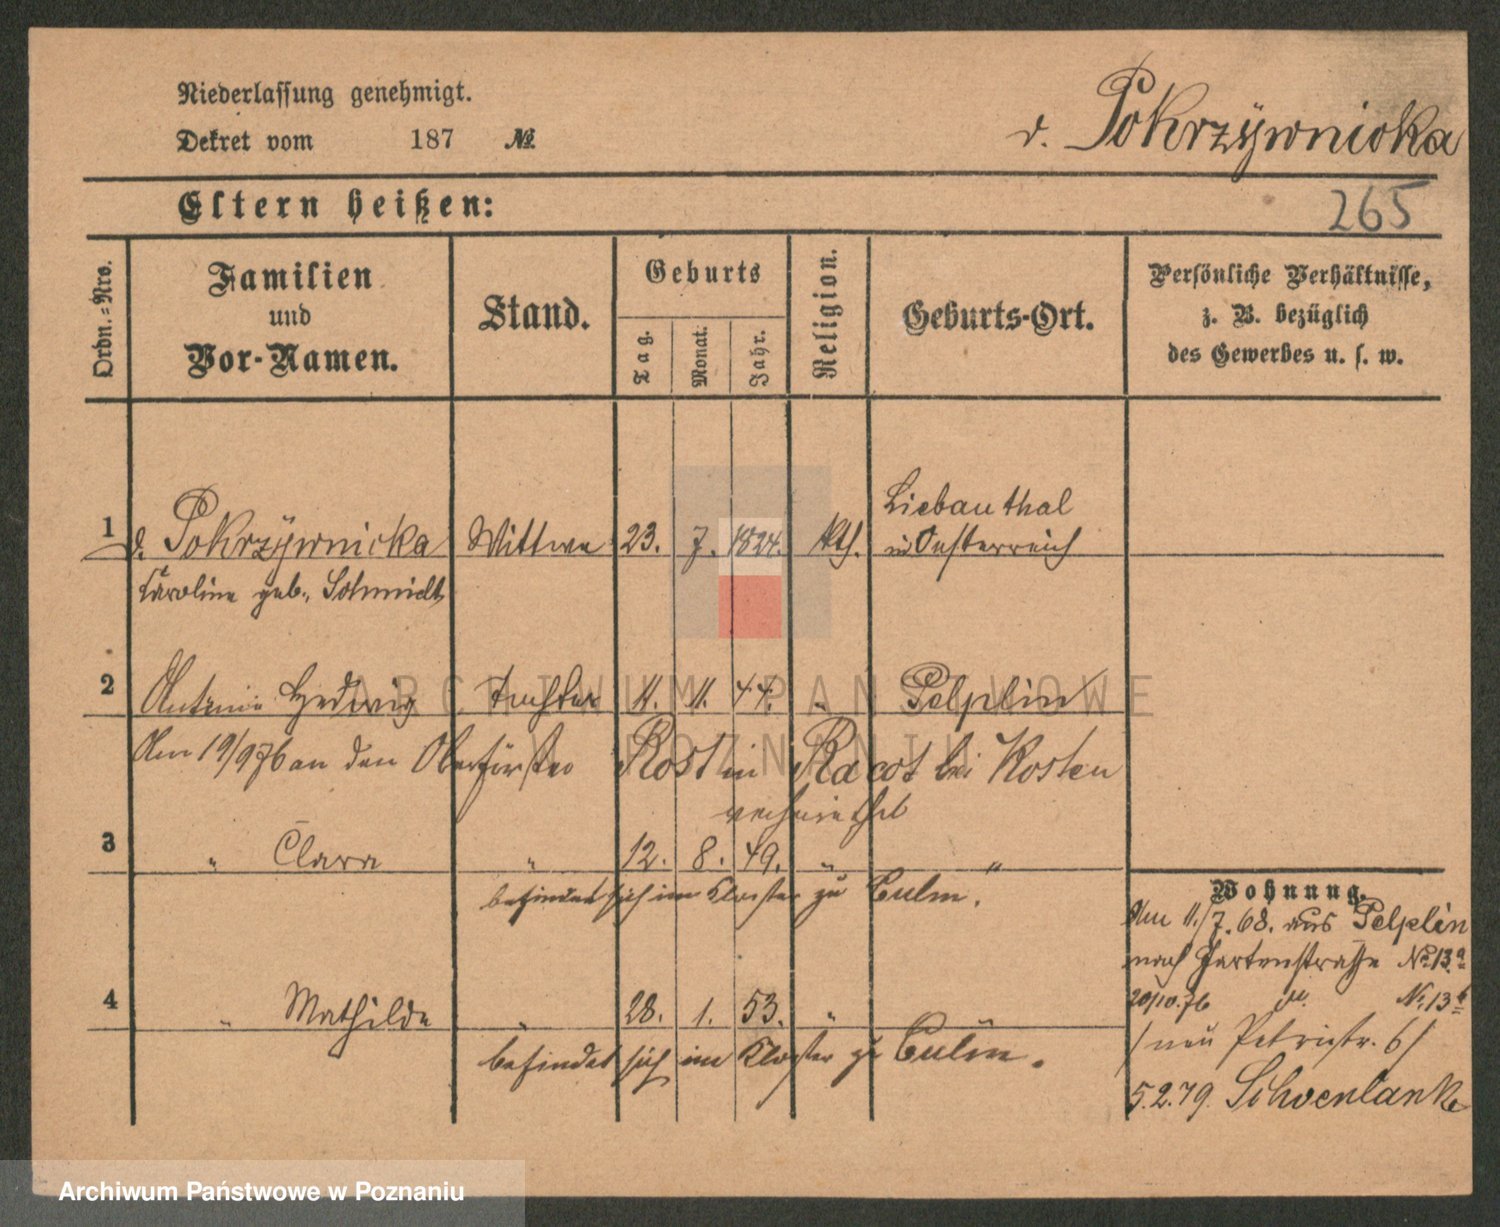 Niederlassung genehmigt.
Dekret vom 187 №
v. Pokrzywnicka
Eltern heißen:
265
Ordn.=Nro.
Familien
und
Vor-Namen.
Stand.
Geburts
Tag.
Monat.
Jahr.
Religion.
Geburts-Ort.
Persönliche Verhältnisse,
z. B. bezüglich
des Gewerbes u. s. w.
Liebauthal
1 v. Pokrzywnicka Wittwe 23. 7. 1824. kth. in Oesterreich
Caroline geb. Schmidt
2 Antonie Hedwig Tochter 11. 11. 44. " Pelplin
Am 19/9 76 an den Oberförster Rost in Racot bei Kosten
verheirathet
3 " Clara " 12. 8. 49. " "
befindet sich im Kloster zu Culm.
4 " Mathilde " 28. 1. 53. " "
befindet sich im Kloster zu Culm.
Wohnung.
Am 11./7. 68. aus Pelplin
nach Gartenstraße No 13a
20/10. 76 No 13b
/ neu Petristr. 6/
5.2.79. Schoenlanke
ARCHIWUM PAŃSTWOWE
W POZNANIU
Archiwum Państwowe w Poznaniu